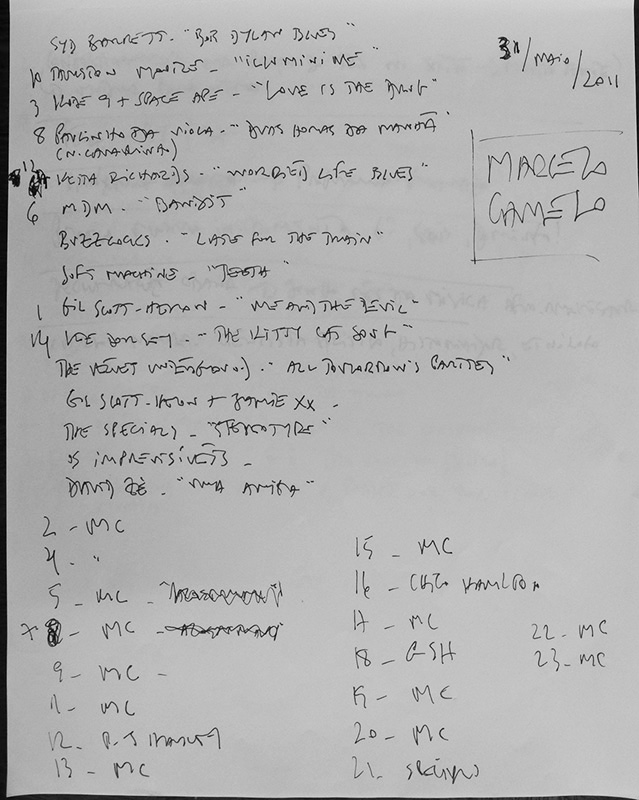 SYD BARRETT - "BOB DYLAN BLUES"
31/MAIO/2011
10 THURSTON MOORE - "ILLUMININE"
3 KODE 9 + SPACE APE - "LOVE IS THE DRUG"
8 PAULINHO DA VIOLA - "DUAS HORAS DA MANHÃ"
MARCELO
CAMELO
KEITH RICHARDS - "WORRIED LIFE BLUES"
6 MDM - "BANDIT"
BUZZCOCKS - "LATE FOR THE TRAIN"
SOFT MACHINE - "TEETH"
1 GIL SCOTT-HERON - "ME AND THE DEVIL"
14 LEE DORSEY - "THE KITTY CAT SONG"
THE VELVET UNDERGROUND - "ALL TOMORROW'S PARTIES"
GIL SCOTT-HERON + JAMIE XX -
THE SPECIALS - "STEREOTYPE"
OS IMPRENSIVEIS -
DAVID ZÉ - "UMA AMIGA"
2 - MC
4 - "
5 - MC -
7 - MC -
9 - MC -
11 - MC
12 - P.J HARVEY
13 - MC
15 - MC
16 - CHICO HAMILTON
17 - MC
18 - GSH
19 - MC
20 - MC
21 - SPECIALS
22 - MC
23 - MC